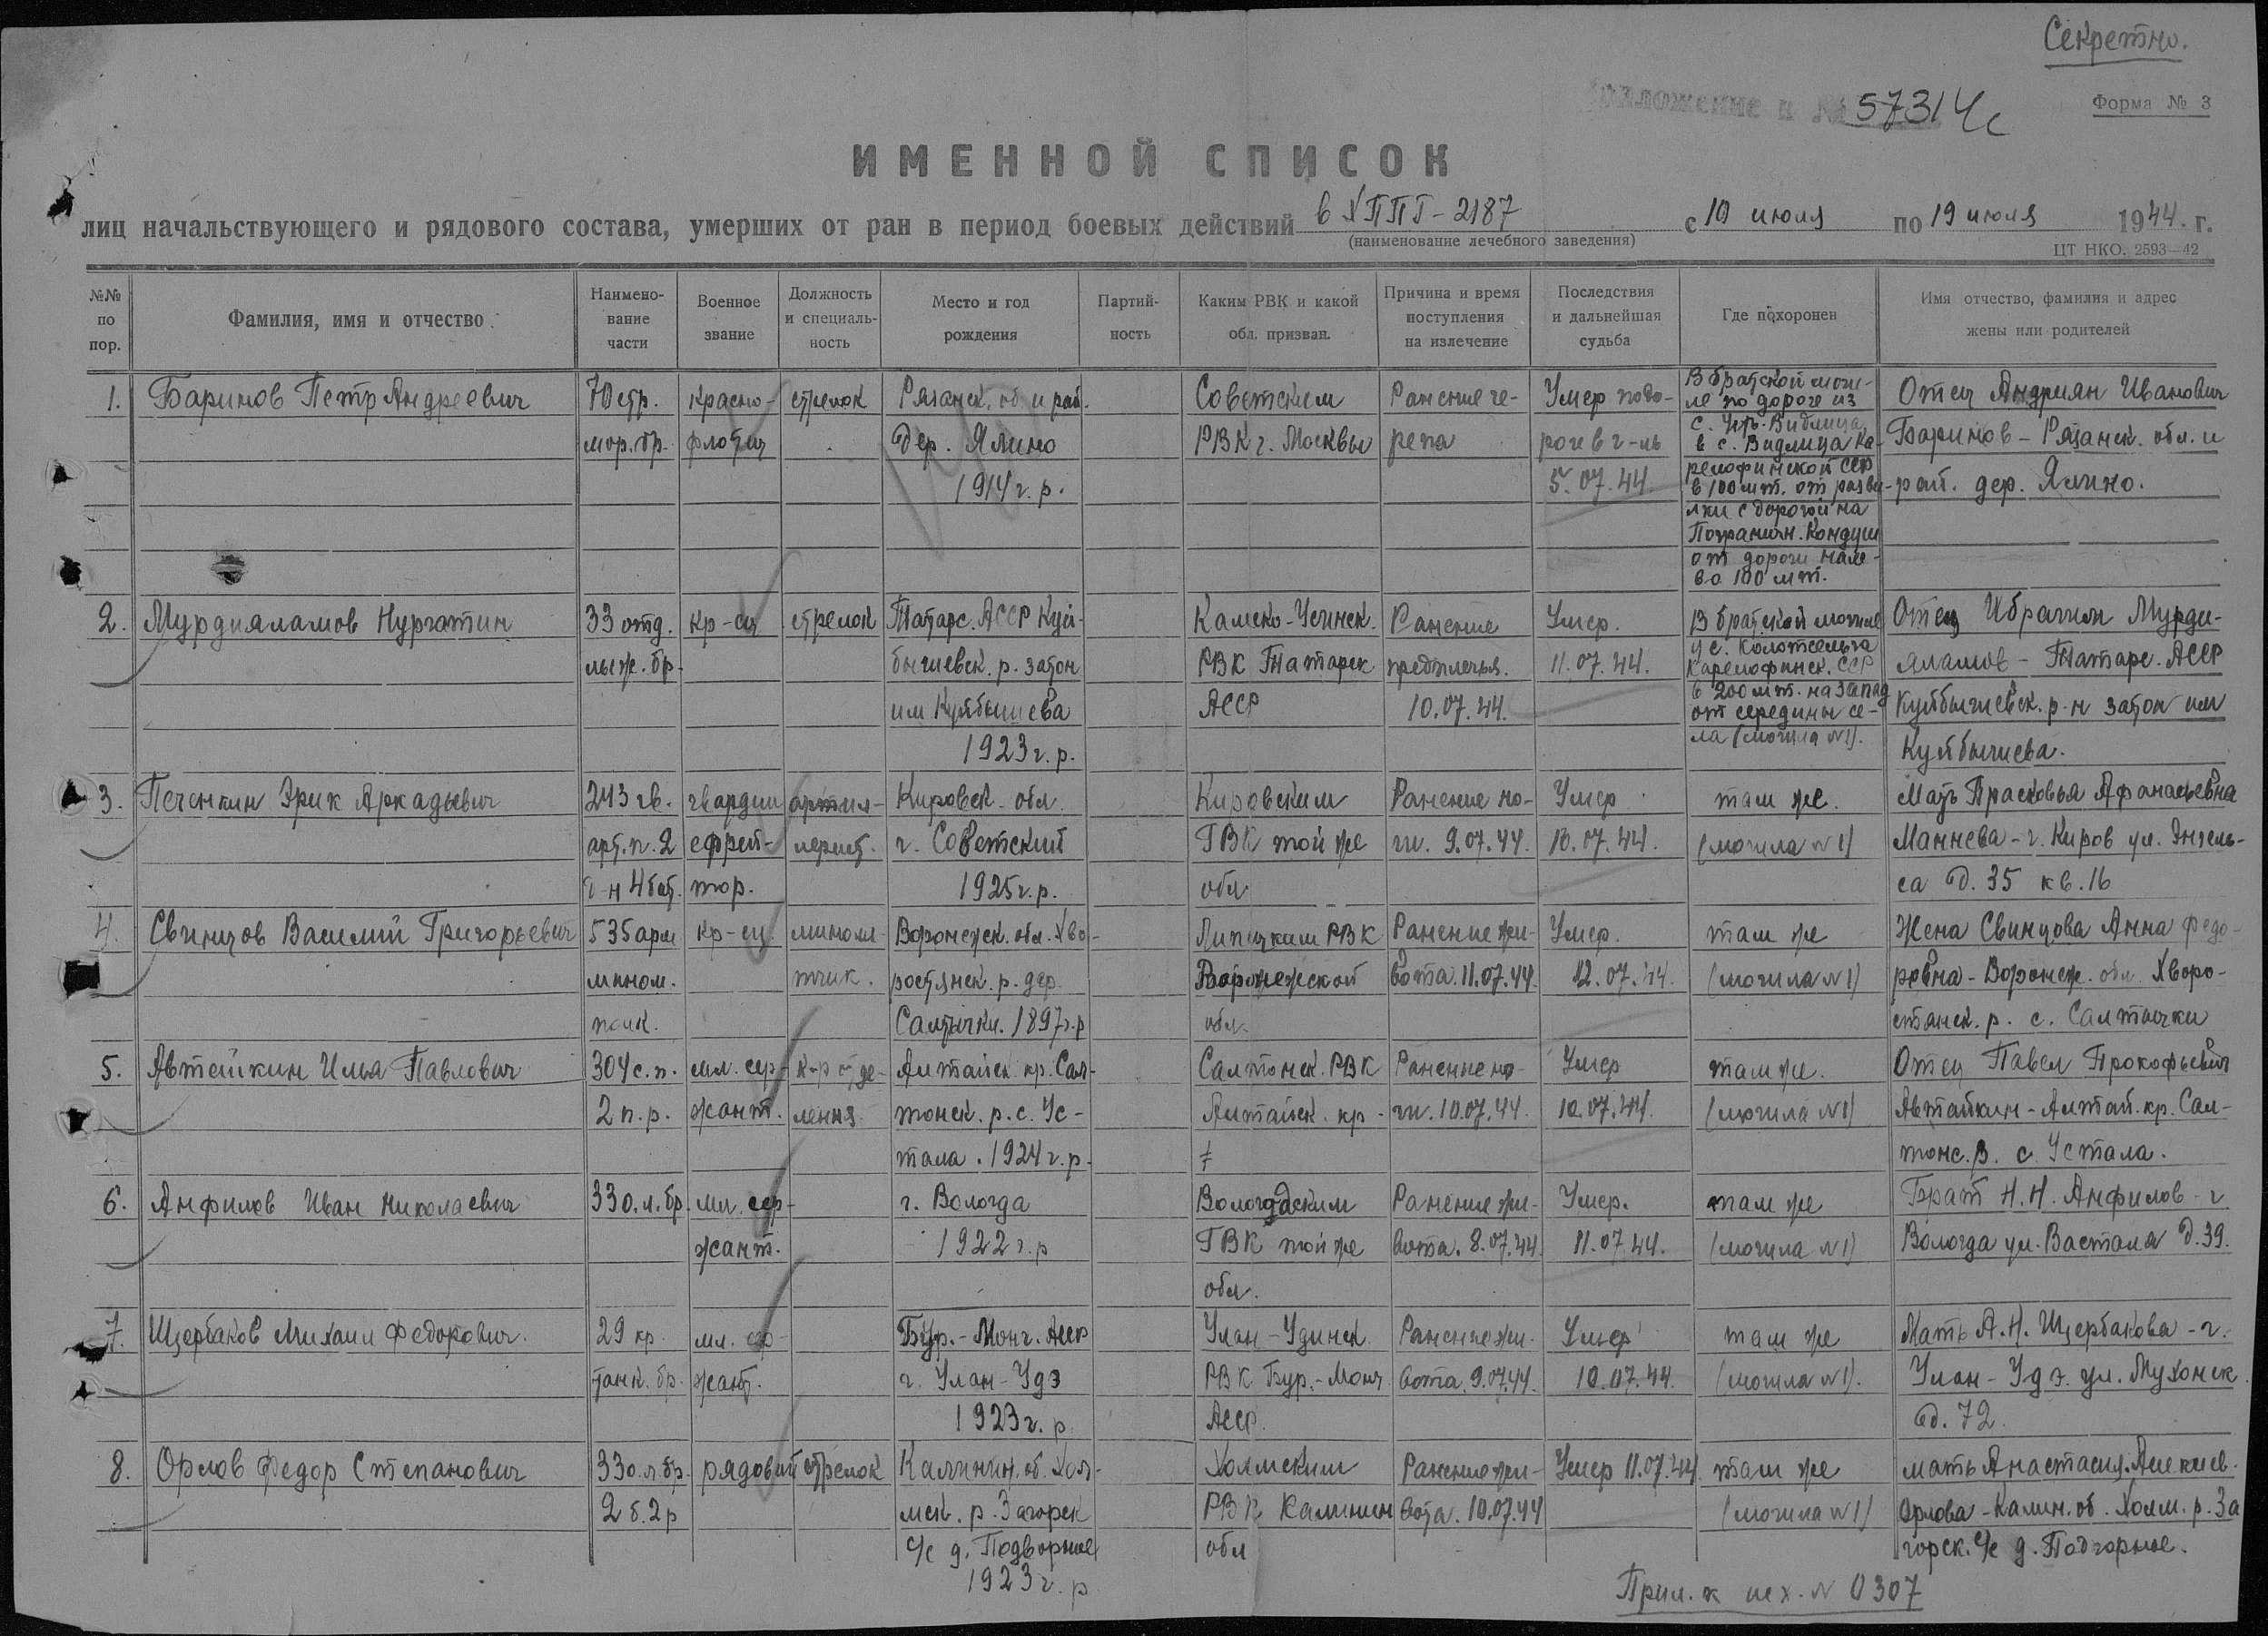 Секретно.
Приложение к № 57314с
Форма № 3
ИМЕННОЙ СПИСОК
лиц начальствующего и рядового состава, умерших от ран в период боевых действий в ХППГ-2187 с 10 июля по 19 июля 1944. г.
(наименование лечебного заведения)
ЦТ НКО. 2593—42
№№ по пор.
Фамилия, имя и отчество
Наимено-
вание
части
Военное
звание
Должность
и специаль-
ность
Место и год
рождения
Партий-
ность
Каким РВК и какой
обл. призван.
Причина и время
поступления
на излечение
Последствия
и дальнейшая
судьба
Где похоронен
Имя отчество, фамилия и адрес
жены или родителей
1.
Баринов Петр Андреевич
70 стр.
мор. бр.
красно-
флотец
стрелок
Рязанск. об и рай.
дер. Ялино
1914 г. р.
Советским
РВК г. Москвы
Ранение че-
репа
Умер по до-
роге в г-ль
5.07.44.
В братской моги-
ле по дороге из
с. Устр. Видлица
в с. Видлица Ка-
релофинской ССР
в 100 мт. от разви-
лки с дорогой на
Погранич. Кондуши
от дороги нале-
во 100 мт.
Отец Андриян Иванович
Баринов - Рязанск. обл. и
рай. дер. Ялино.
2.
Мурдияламов Нургатин
33 отд.
лыж. бр.
кр-ец
стрелок
Татарс. АССР Куй-
бышевск. р. затон
им Куйбышева
1923 г. р.
Камско-Устинск.
РВК Татарск
АССР
Ранение
предплечья.
10.07.44.
Умер.
11.07.44.
В братской могиле
у с. Колотсельга
Карелофинск. ССР
в 200 мт. на запад
от середины се-
ла (могила №1).
Отец Ибрагим Мурди-
яламов - Татарс. АССР
Куйбышевск. р-н затон им
Куйбышева.
3.
Печенкин Эрик Аркадьевич
243 гв.
арт. п. 2
д-н 4 бат.
гвардии
ефрей-
тор.
артил-
лерист.
Кировск. обл.
г. Советский
1925 г. р.
Кировским
ГВК той же
обл.
Ранение но-
ги. 9.07.44.
Умер
10.07.44.
там же.
(могила №1)
Мать Прасковья Афанасьевна
Маннева - г. Киров ул. Энгель-
са д. 35 кв. 16
4.
Свинцов Василий Григорьевич
535 арм
мином.
полк.
кр-ец
миномe-
тчик.
Воронежск. обл. Хво-
ростянск. р. дер.
Салтычки. 1897 г. р
Липецким РВК
Воронежской
обл.
Ранение жи-
вота. 11.07.44.
Умер.
12.07.44.
там же
(могила №1)
Жена Свинцова Анна Федо-
ровна - Воронеж. обл. Хворо-
стянск. р. с. Салтычки
5.
Автайкин Илья Павлович
304 с. п.
2 п. р.
мл. сер-
жант.
к-р отде-
ления
Алтайск. кр. Сал-
тонск. р. с. Ус-
тала. 1924 г. р.
Салтонск. РВК
Алтайск. кр.
Ранение но-
ги. 10.07.44.
Умер
10.07.44.
там же.
(могила №1)
Отец Павел Прокофьевич
Автайкин - Алтай. кр. Сал-
тонс. р. с. Устала.
6.
Анфилов Иван Николаевич
33 о. л. бр.
мл. сер-
жант.
г. Вологда
1922 г. р
Вологодским
ГВК той же
обл.
Ранение жи-
вота. 8.07.44.
Умер.
11.07.44.
там же
(могила №1)
Брат Н. Н. Анфилов - г.
Вологда ул. Вастала д. 39.
7.
Щербаков Михаил Федорович.
29 кр.
танк. бр.
мл. сер-
жант.
Бур.-Монг. АССР
г. Улан-Удэ
1923 г. р.
Улан-Удинск.
РВК Бур.-Монг
АССР.
Ранение жи-
вота. 9.07.44.
Умер
10.07.44.
там же
(могила №1).
Мать А. Н. Щербакова - г.
Улан-Удэ. ул. Мухонск.
д. 72.
8.
Орлов Федор Степанович
33 о. л. бр.
2 б. 2 р
рядовой
стрелок
Калинин. об. Хол-
мск. р. Загорск
с/с д. Подворные
1923 г. р
Холмским
РВК Калинин
обл
Ранение жи-
вота. 10.07.44
Умер 11.07.44
там же
(могила №1)
мать Анастасия Алексеев.
Орлова - Калин. об. Холм. р. За
горск. с/с д. Подгорные.
Прил. к исх. № 0307